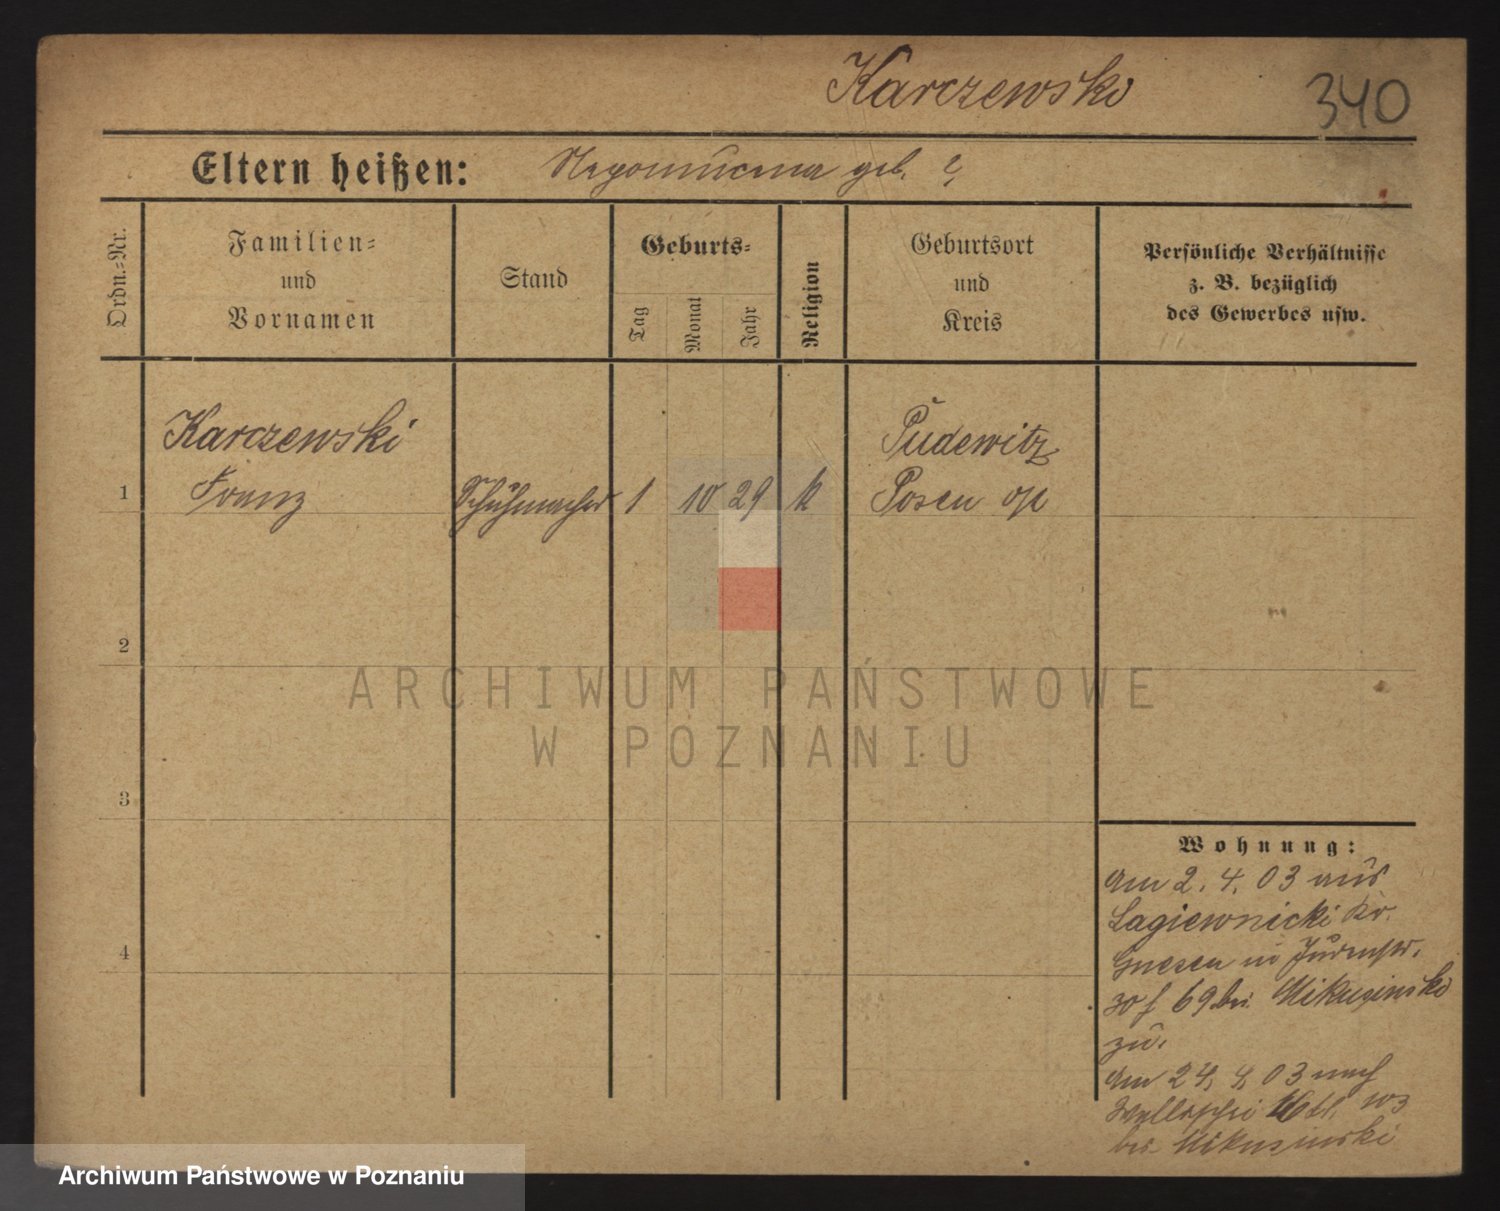 Karczewski
340
Eltern heißen: Nepomucena geb. ?
Ordn.-Nr.
Familien-
und
Vornamen
Stand
Geburts-
Tag
Monat
Jahr
Religion
Geburtsort
und
Kreis
Persönliche Verhältnisse
z. B. bezüglich
des Gewerbes usw.
Karczewski Pudewitz
1 Franz Schuhmacher 1 10 29 k Posen op
2
ARCHIWUM PAŃSTWOWE
W POZNANIU
3
4
Wohnung:
am 2. 4. 03 aus
Lagiewnicki Kr.
Gnesen in
69 bei
zu.
am 24. 4. 03 nach
bei Mikusinski
Archiwum Państwowe w Poznaniu